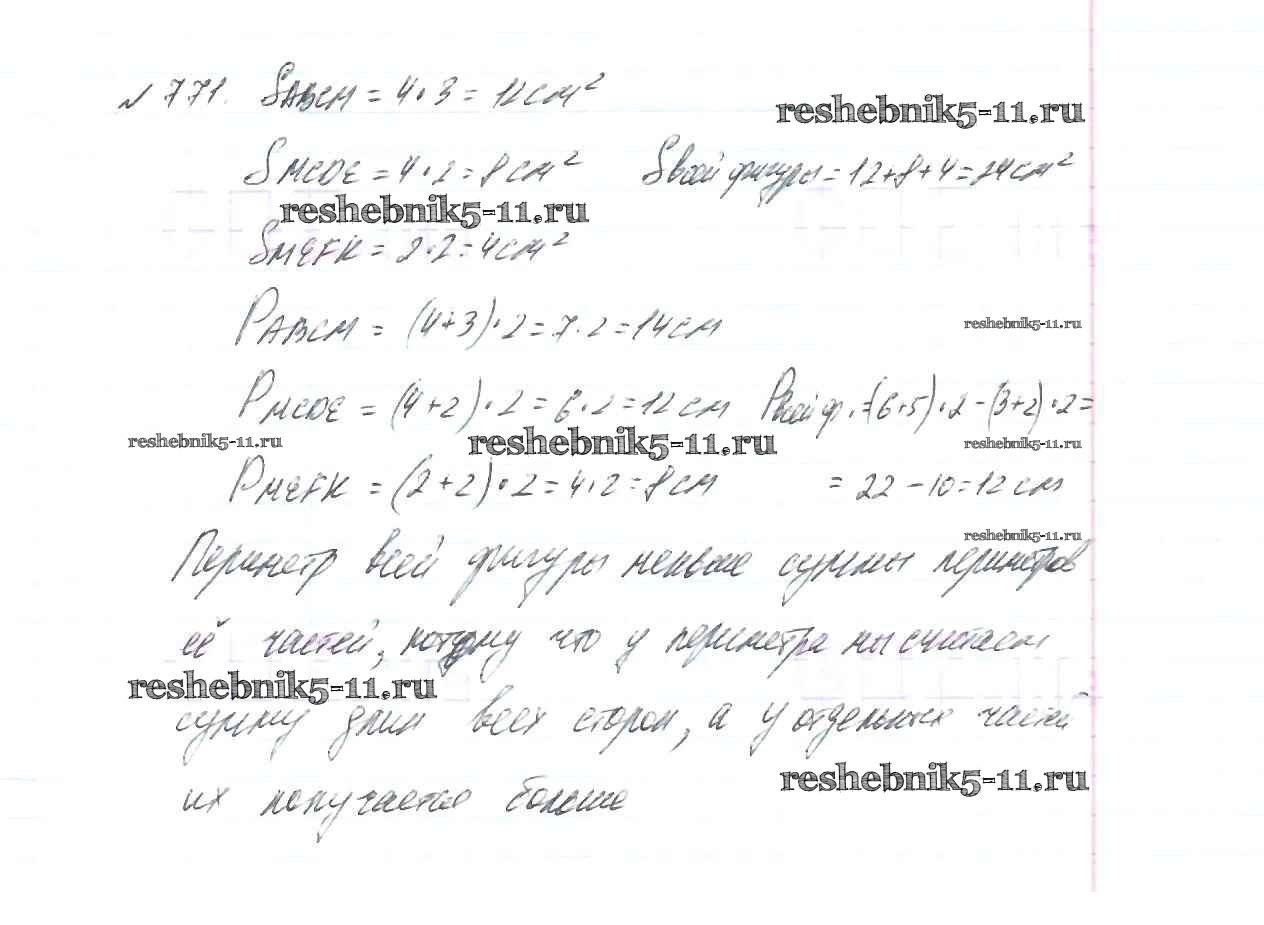 № 771. SABCM = 4·3 = 12 см²
reshebnik5-11.ru
SMCDE = 4·2 = 8 см² Sвсей фигуры = 12+8+4 = 24 см²
reshebnik5-11.ru
SMEFK = 2·2 = 4 см²
PABCM = (4+3)·2 = 7·2 = 14 см
reshebnik5-11.ru
PMCDE = (4+2)·2 = 6·2 = 12 см Pвсей ф. = (6+5)·2 - (3+2)·2 =
reshebnik5-11.ru reshebnik5-11.ru reshebnik5-11.ru
PMEFK = (2+2)·2 = 4·2 = 8 см = 22 - 10 = 12 см
reshebnik5-11.ru
Периметр всей фигуры меньше суммы периметров
её частей, потому что у периметра мы считаем
reshebnik5-11.ru
сумму длин всех сторон, а у отдельных частей
reshebnik5-11.ru
их получается больше